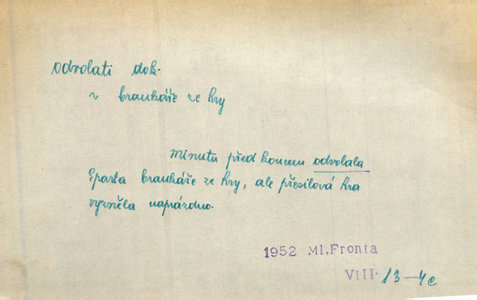 odvolati dok.
z brankáře ze hry
Minutu před koncem odvolala
Sparta brankáře ze hry, ale přesilová hra
vyzněla naprázdno.
1952 Ml.Fronta
VIII. 13-4c